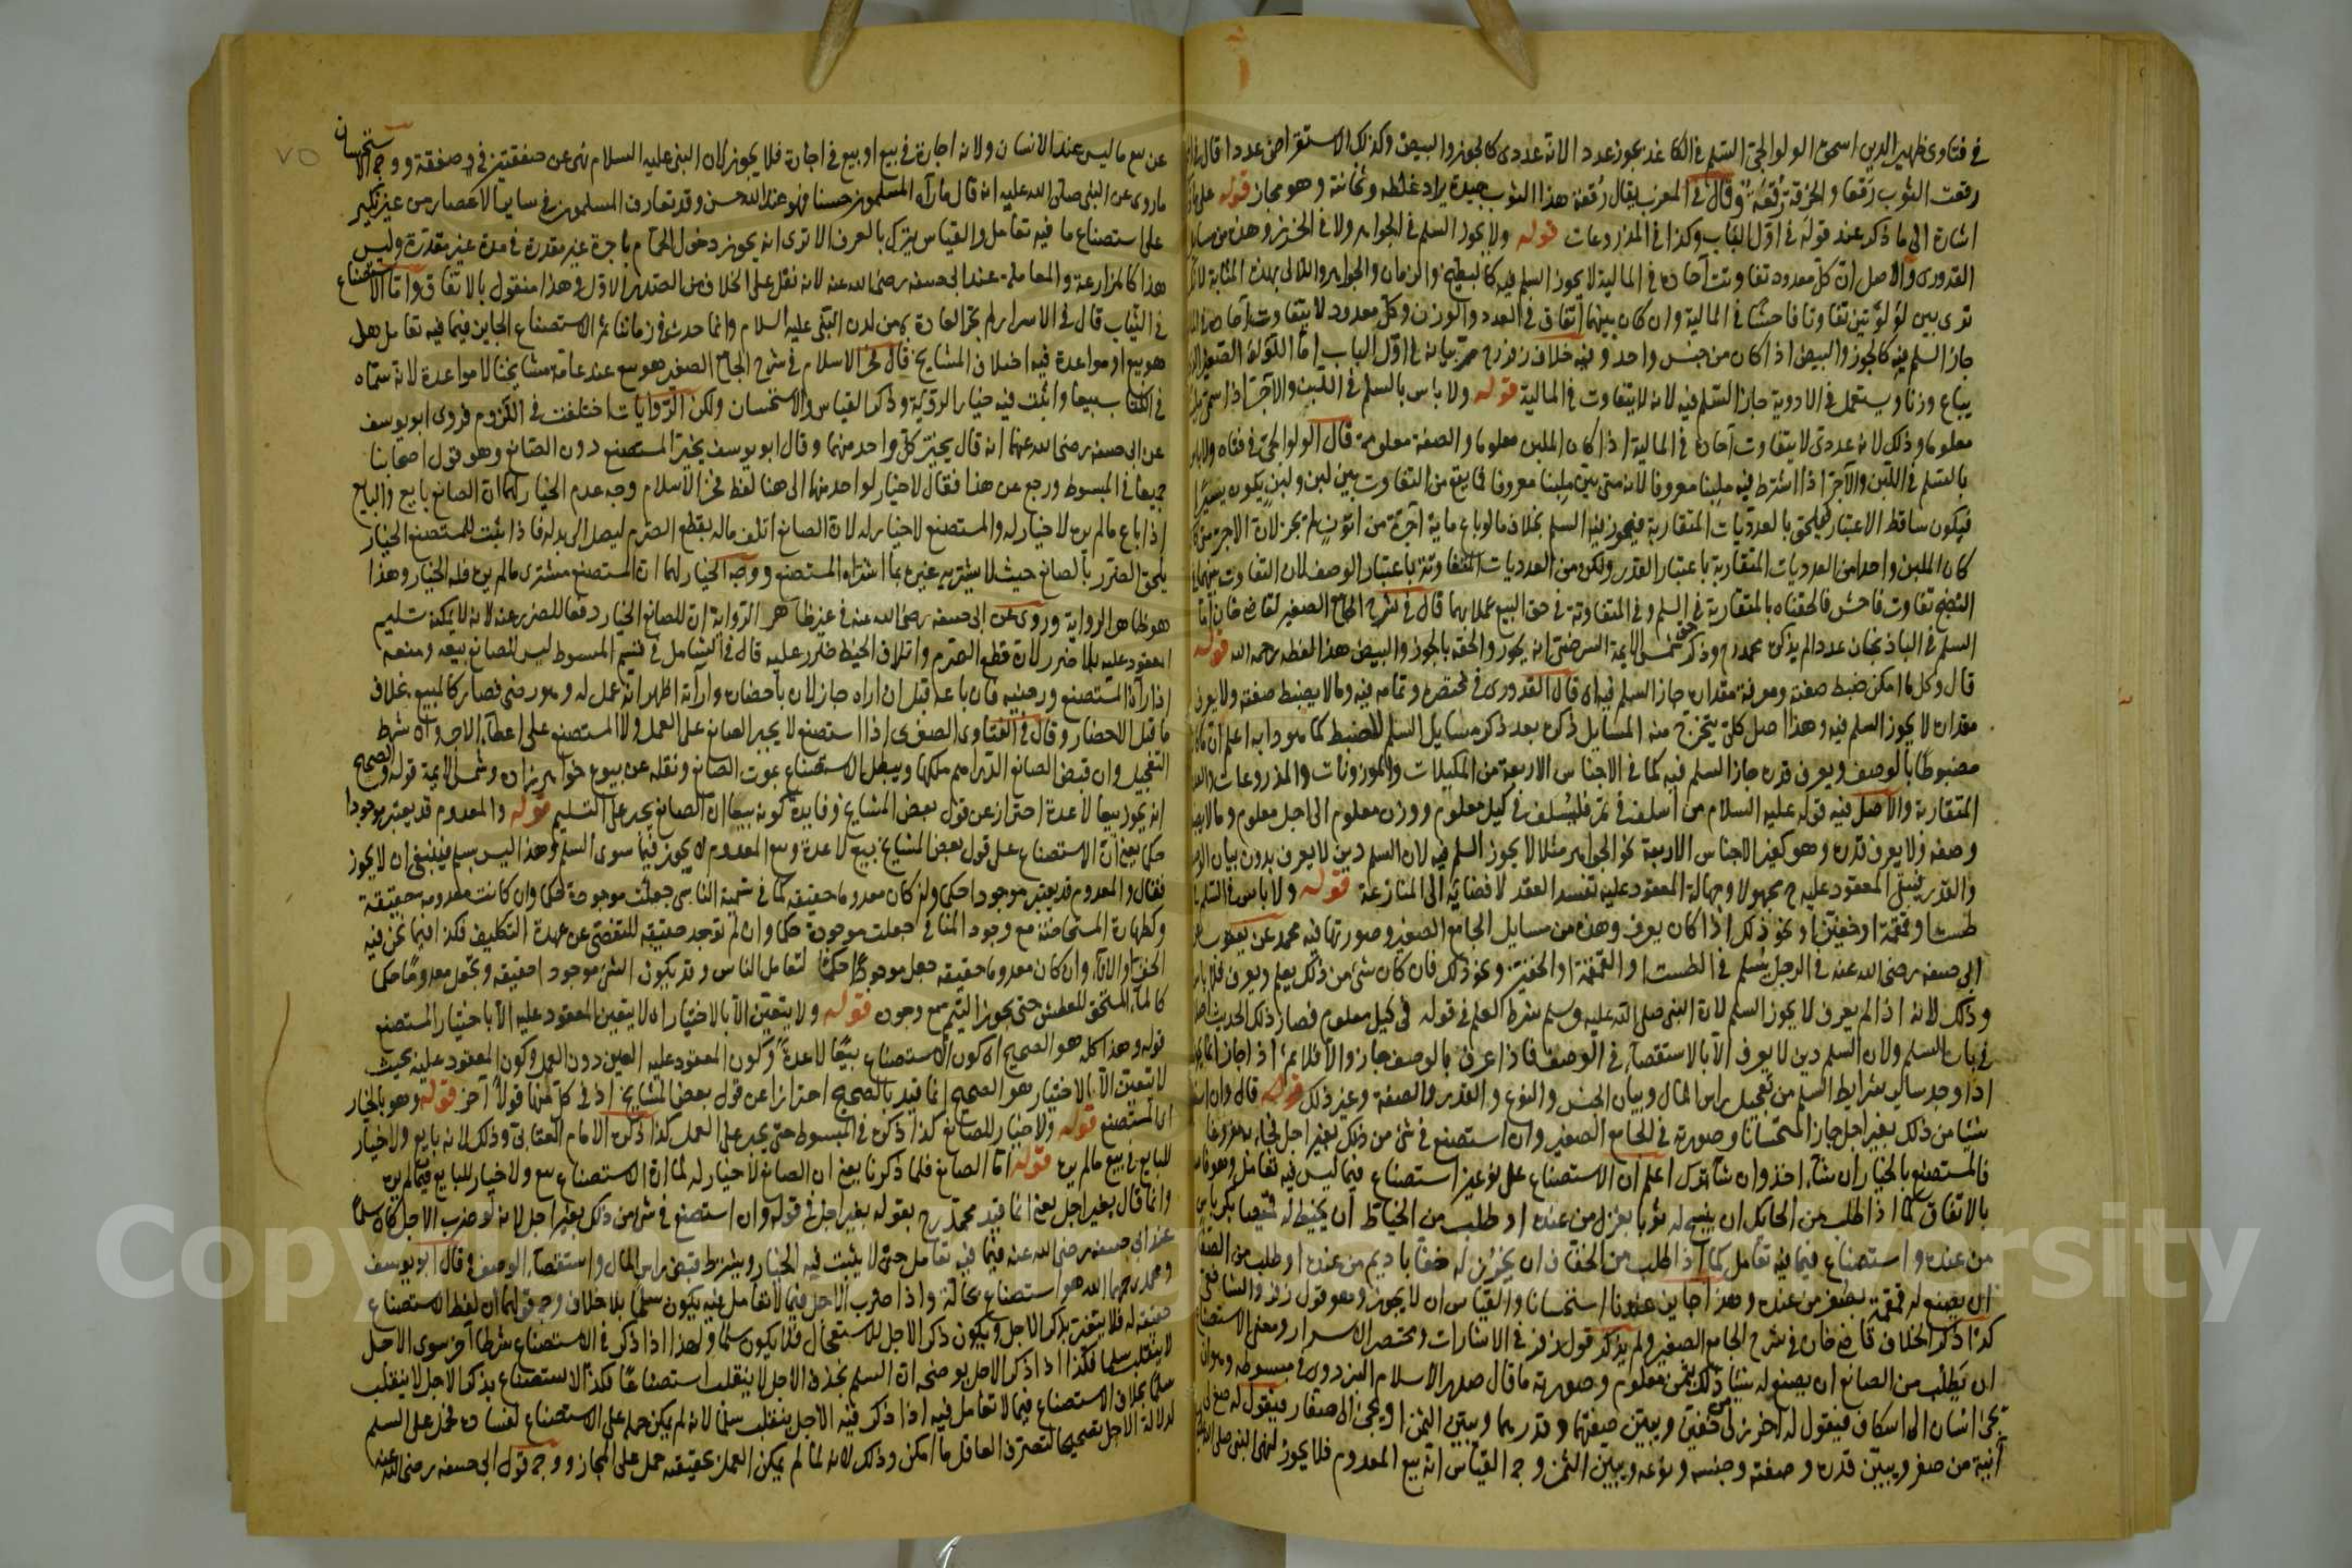 في فتاوى ظهير الدين اسحق الولوالجي السلم في الكاغد يجوز عددا لانه عددي كالجوز والبيض وكذلك الاستقراض عددا قال
رقعت الثوب رقعا والخرقة رقعة وقال في المغرب يقال رقعة هذا الثوب جيدة يراد غلظه وثخانته وهو مجاز قوله على
اشارة الى ما ذكر عند قوله في اول الباب وكذا في المذروعات قوله ولا يجوز السلم في الجواهر ولا في الخرز وهذه من مسائل
القدوري والاصل ان كل معدود تفاوتت آحاده في المالية لا يجوز السلم فيه كالبطيخ والرمان والجواهر واللآلي بهذه المثابة
ترى بين لؤلؤتين تفاوتا فاحشا في المالية وان كان بينهما اتفاق في العدد والوزن وكل معدود لا يتفاوت آحاده في
جاز السلم فيه كالجوز والبيض اذا كان من جنس واحد وفيه خلاف زفر رح مر بيانه في اول الباب اما اللؤلؤ الصغير
يباع وزنا ويستعمل في الادوية جاز السلم فيه لانه لا يتفاوت في المالية قوله ولا باس بالسلم في اللبن والآجر اذا سمى
معلوما وذلك لانه عددي لا يتفاوت آحاده في المالية اذا كان الملبن معلوما والصفة معلومة قال الولوالجي في فتاواه ولا باس
بالسلم في اللبن والآجر اذا اشترط فيه ملبنا معروفا لانه متى بين ملبنا معروفا فما يقع من التفاوت بين لبن ولبن يكون يسيرا
فيكون ساقط الاعتبار فيلحق بالعدديات المتقاربة فيجوز فيه السلم بخلاف ما لو باع ماية آجرة من اتون لم يجز لان الآجر
كان الملبن واحدا من العدديات المتقاربة باعتبار القدر ولكن من العدديات المتفاوتة باعتبار الوصف لان التفاوت
النضج تفاوت فاحش فالحقناه بالمتقاربة في السلم وفي المتفاوتة في حق البيع عملا بهما قال في شرح الجامع الصغير لقاضي خان اما
السلم في الباذنجان عددا لم يذكره محمد رح وذكر شمس الايمة السرخسي انه يجوز والحقه بالجوز والبيض هذا لفظه رحمه الله قوله
قال وكل ما امكن ضبط صفته ومعرفة مقداره جاز السلم فيه اي قال القدوري في مختصره وتمامه فيه وما لا يضبط صفته ولا يعرف
مقداره لا يجوز السلم فيه وهذا اصل كلي يتخرج منه المسايل ذكره بعد ذكر مسايل السلم للضبط كما هو دابه اعلم ان
مضبوطا بالوصف ويعرف قدره جاز السلم فيه كما في الاجناس الاربعة من المكيلات والموزونات والمذروعات
المتقاربة والاصل فيه قوله عليه السلام من اسلف في تمر فليسلف في كيل معلوم ووزن معلوم الى اجل معلوم وما لا
وصفه ولا يعرف قدره وهو كغير الاجناس الاربعة نحو الجواهر مثلا لا يجوز السلم فيه لان السلم دين لا يعرف بدون بيان
والقدر فيبقى المعقود عليه ح مجهولا وجهالة المعقود عليه تفسد العقد لافضائه الى المنازعة قوله ولا باس في السلم
طست او قمقمة او خفين او نحو ذلك اذا كان يعرف وهذه من مسايل الجامع الصغير وصورتها فيه محمد عن يعقوب
ابي حنيفة رضي الله عنه في الرجل يسلم في الطست او القمقمة او الخفين ونحو ذلك فان كان شيء من ذلك يعلم ويعرف فلا باس
وذلك لانه اذا لم يعرف لا يجوز السلم لان النبي صلى الله عليه وسلم شرط العلم في قوله في كيل معلوم فصار ذلك الحديث
في باب السلم ولان السلم دين لا يعرف الا بالاستقصاء في الوصف فاذا عرف بالوصف جاز والا فلا ثم اذا جاز
اذا وجد ساير شرايط السلم من تعجيل راس المال وبيان الجنس والنوع والقدر والصفة وغير ذلك قوله قال وان
شيئا من ذلك بغير اجل جاز استحسانا وصورته في الجامع الصغير وان استصنع في شيء من ذلك بغير اجل
فالمستصنع بالخيار ان شاء اخذ وان شاء ترك اعلم ان الاستصناع على نوعين استصناع فيما ليس فيه تعامل وهو
بالاتفاق كما اذا طلب من الحائك ان ينسج له ثوبا بغزل من عنده او طلب من الخياط ان يخيط له قميصا بكرباس
من عنده واستصناع فيما فيه تعامل كما اذا طلب من الخفاف ان يخرز له خفا باديم من عنده او طلب من
ان يصنع له قمقمة بصفر من عنده وهذا جايز عندنا استحسانا والقياس ان لا يجوز وهو قول زفر والشافعي
كذا ذكر الخلاف قاضي خان في شرح الجامع الصغير ولم يذكر قول زفر في الاشارات ومختصر الاسرار ومعنى الاستصناع
ان يطلب من الصانع ان يصنع له شيئا بثمن معلوم وصورته ما قال صدر الاسلام البزدوي في مبسوطه وهو ان
يجيء انسان الى اسكاف فيقول له اخرز لي خفين ويبين صفتهما وقدرهما ويبين الثمن او يجيء الى صفار فيقول له
آنية من صفر ويبين قدره وصفته وجنسه ونوعه ويبين الثمن وجه القياس انه بيع المعدوم فلا يجوز لنهي النبي
٧٥
عن بيع ما ليس عند الانسان ولانه اجارة في بيع او بيع في اجارة فلا يجوز لان النبي عليه السلام نهى عن صفقتين في صفقة ووجه الاستحسان
ما روي عن النبي صلى الله عليه انه قال ما رآه المسلمون حسنا فهو عند الله حسن وقد تعارف المسلمون في ساير الاعصار من غير نكير
على استصناع ما فيه تعامل والقياس يترك بالعرف الا ترى انه يجوز دخول الحمام باجرة غير مقدرة في مدة غير مقدرة وليس
هذا كالمزارعة والمعاملة عند ابي حنيفة رضي الله عنه لانه نقل على الخلاف من الصدر الاول وهذا منقول بالاتفاق واما الاستصناع
في الثياب قال في الاسرار لم يجز العادة به من لدن النبي عليه السلام وانما حدث في زماننا ثم الاستصناع الجايز فيما فيه تعامل هل
هو بيع او مواعدة فيه اختلاف المشايخ قال فخر الاسلام في شرح الجامع الصغير هو بيع عند عامة مشايخنا لا مواعدة لانه سماه
في الكتاب بيعا واثبت فيه خيار الرؤية وذكر القياس والاستحسان ولكن الروايات اختلفت في اللزوم فروى ابو يوسف
عن ابي حنيفة رضي الله عنهما انه قال يخير كل واحد منهما وقال ابو يوسف يخير المستصنع دون الصانع وهو قول اصحابنا
جميعا في المبسوط ورجع عن هذا فقال لا خيار لواحد منهما الى هنا لفظ فخر الاسلام وجه عدم الخيار لهما ان الصانع بايع والبايع
اذا باع ما لم يره لا خيار له والمستصنع لا خيار له لان الصانع اتلف ماله بقطع الصرم ليصل الى بدله فاذا ثبت للمستصنع الخيار
يلحق الضرر بالصانع حيث لا يشتريه غيره بما اشتراه المستصنع ووجه الخيار لهما ان المستصنع مشتري ما لم يره فله الخيار وهذا
هو ظاهر الرواية وروي عن ابي حنيفة رضي الله عنه في غير ظاهر الرواية ان للصانع الخيار دفعا للضرر عنه لانه لا يمكنه تسليم
المعقود عليه بلا ضرر لان قطع الصرم واتلاف الخيط ضرر عليه قال في الشامل في قسم المبسوط ليس للصانع بيعه ومنعه
اذا رآه المستصنع ورضيه فان باعه قبل ان اراه جاز لان باحضاره وارآئه اظهر انه عمل له وهو رضي فصار كالمبيع بخلاف
ما قبل الاحضار وقال في الفتاوى الصغرى اذا استصنع لا يجبر الصانع على العمل ولا المستصنع على اعطاء الاجر وان شرط
التعجيل وان قبض الصانع الدراهم ملكها ويبطل الاستصناع بموت الصانع ونقله عن بيوع خواهر زاده وشمس الايمة قوله والصحيح
انه يجوز بيعا لا عدة احتراز عن قول بعض المشايخ وفايدة كونه بيعا ان الصانع يجبر على التسليم قوله والمعدوم قد يعتبر موجودا
حكما يعني ان الاستصناع على قول بعض المشايخ بيع لا عدة وبيع المعدوم لا يجوز فيما سوى السلم وهذا ليس بسلم فينبغي ان لا يجوز
فقال والمعدوم قد يعتبر موجودا حكما وان كان معدوما حقيقة كما في تسمية الناسي جعلت موجودة حكما وان كانت معدومة حقيقة
وكطهارة المستحاضة مع وجود المنافي جعلت موجودة حكما وان لم توجد حقيقة للتفصي عن عهدة التكليف فكذا فيما نحن فيه
الخف والاناء وان كان معدوما حقيقة جعل موجودا حكما لتعامل الناس وقد يكون الشيء موجودا حقيقة ويجعل معدوما حكما
كالماء المستحق للعطش حتى يجوز التيمم مع وجوده قوله ولا يتعين الا بالاختيار اي لا يتعين المعقود عليه الا باختيار المستصنع
قوله وهذا كله هو الصحيح اي كون الاستصناع بيعا لا عدة وكون المعقود عليه العين دون العمل وكون المعقود عليه بحيث
لا يتعين الا بالاختيار هو الصحيح انما قيد بالصحيح احترازا عن قول بعض المشايخ اذ في كل منها قولا آخر قوله وهو بالخيار
اي المستصنع قوله ولا خيار للصانع كذا ذكره في المبسوط حتى يجبر على العمل كذا ذكره الامام العتابي وذلك لانه بايع ولا خيار
للبايع في بيع ما لم يره قوله اما الصانع فلما ذكرنا يعني ان الصانع لا خيار له لما ان الاستصناع بيع ولا خيار للبايع فيما لم يره
وانما قال بغير اجل يعني انما قيد محمد رح بقوله بغير اجل في قوله وان استصنع في شيء من ذلك بغير اجل لانه لو ضرب الاجل كان سلما
عند ابي حنيفة رضي الله عنه فيما فيه تعامل حتى لا يثبت فيه الخيار ويشترط قبض راس المال واستقصاء الوصف وقال ابو يوسف
ومحمد رحمهما الله هو استصناع بحاله واذا ضرب الاجل فيما لا تعامل فيه يكون سلما بلا خلاف وجه قولهما ان لفظ الاستصناع
حقيقة له فلا يتغير بذكر الاجل ويكون ذكر الاجل للاستعجال فلا يكون سلما ولهذا اذا ذكر في الاستصناع شرطا آخر سوى الاجل
لا ينقلب سلما فكذا اذا ذكر الاجل يوضحه ان السلم بحذف الاجل لا ينقلب استصناعا فكذا الاستصناع بذكر الاجل لا ينقلب
سلما بخلاف الاستصناع فيما لا تعامل فيه اذا ذكر فيه الاجل ينقلب سلما لانه لم يمكن حمله على الاستصناع لفساده فحمل على السلم
لدلالة الاجل تصحيحا لتصرف العاقل ما امكن وذلك لانه لما لم يمكن العمل بحقيقته حمل على المجاز ووجه قول ابي حنيفة رضي الله عنه